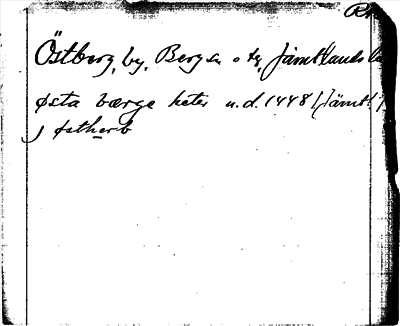 Östberg, by, Bergs sn o tg, Jämtlands
østa bærge heter u.d. 1448 (Jämtl
j østberb